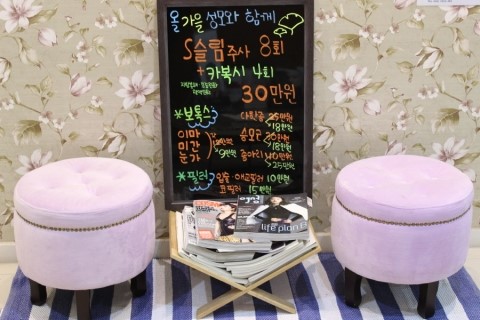 올 가을 성모와 함께
S슬림 주사 8회
+ 카복시 4회
30만원
*보톡스
사각턱 25만원
18만원
이마
미간
눈가
9만원
승모근 30만원
18만원
종아리 40만원
25만원
*필러
입술·애교필러 10만원
코필러 15만원
life plan